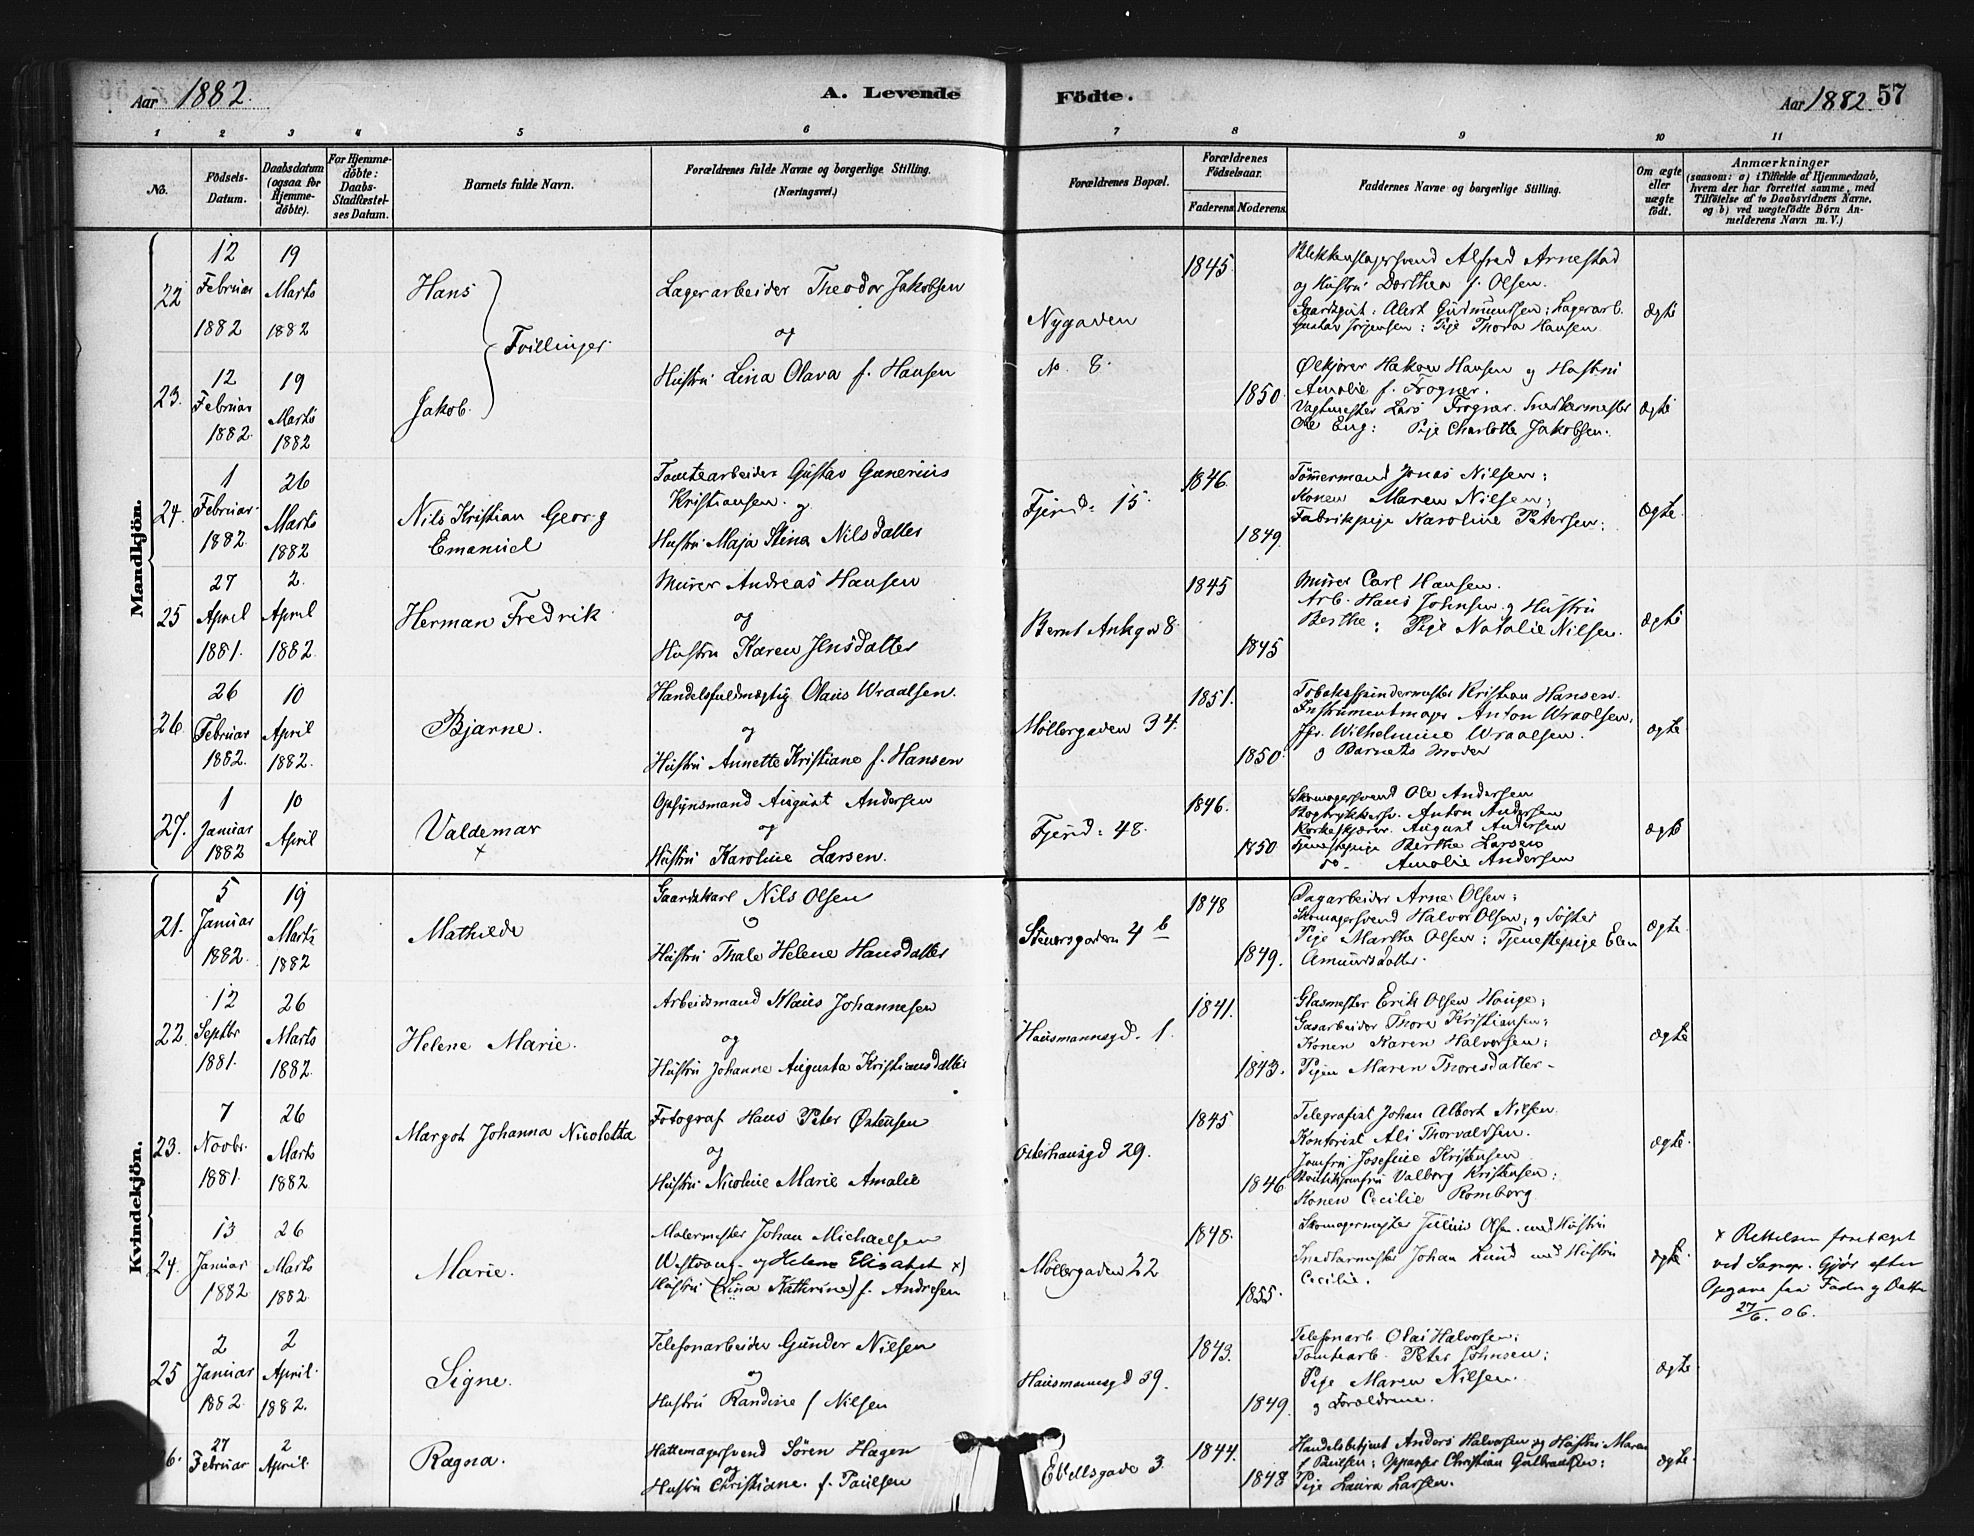 Aar 1882. A. Levende Födte. Aar 1882. 57
1 2 3 4 5 6 7 8 9 10 11
No.
Födsels-Datum.
Daabsdatum (ogsaa for Hjemme-döbte).
For Hjemme-döbte: Daabs-Stadfæstel-ses Datum.
Barnets fulde Navn.
Forældrenes fulde Navne og borgerlige Stilling.
(Næringsvei.)
Forældrenes Bopæl.
Forældrenes Födselsaar.
Faderens. Moderens.
Faddernes Navne og borgerlige Stilling.
Om ægte eller uægte födt.
Anmærkninger
(saasom: a) i Tilfælde af Hjemmedaab,
hvem der har forrettet samme, med
Tilföielse af to Daabsvidners Navne.
og b) ved uægtefödte Börn An-
melderens Navn m. V.)
Mandkjön.
22 12 Februar 1882 19 Marts 1882 Hans
Tvillinger.
Lagerarbeider Theodor Jakobsen
og
Hustru Lina Olava f. Hansen
Nygaden
No. 8.
1845
1850
Blikkenslagersvend Alfred Arnestad
og Hustru Dorthea f. Olsen.
Gaardsgut: Albert Gudmundsen; Lagerarb.
Gustav Jörgensen: Pige Thora Hansen
ægte
23. 12 Februar 1882. 19 Marts 1882 Jakob.
Ölkjörer Hakon Hansen og Hustru
Amalie f. Frogner.
Vagtmester Lars Frogner. Snedkermester
Ole Eng: Pige Charlotte Jakobsen.
ægte
24. 1 Februar 1882. 26 Marts 1882
Nils Kristian Georg
Emanuel
Tomtearbeider Gustav Gunerius
Kristiansen. og
Hustru Maja Stina Nilsdatter
Fjerd: 15.
1846.
1849.
Tömmermand Jonas Nilsen;
Konen Maren Nilsen;
Fabrikpige Karoline Petersen;
ægte.
25 27 April 1881. 2. April 1882.
Herman Fredrik
Murer Andreas Hansen
og
Hustru Karen Jensdatter
Bernt Ankgd 8.
1845
1845
Murer Carl Hansen.
Arb. Hans Johnsen og Hustru
Berthe: Pige Natalie Nilsen.
ægte
26. 26 Februar 1882. 10 April 1882.
Bjarne.
Handelsfuldmægtig Olaus Wraalsen.
og
Hustru Annette Kristiane f. Hansen
Möllergaden 34.
1851.
1850.
Tobaksspindermester Kristian Hansen.
Instrumentmager Anton Wraalsen.
Jfr. Wilhelmine Wraalsen.
og Barnets Moder
ægte
27. 1 Januar 1882 10 April
Valdemar
x
Opsynsmand August Andersen
og
Hustru Karoline Larsen.
Fjerd: 48.
1846.
1850
Skomagersvend Ole Andersen
Bogtrykkersv. Anton Andersen
Korkeskjærer. August Andersen
Tjenestepige Berthe Larsen
do - Amalie Andersen
ægte
Kvindekjön.
21. 5 Januar 1882. 19 Marts 1882
Mathilde
Gaardskarl Nils Olsen
og
Hustru Thale Helene Hansdatter
Steversgaden 4 b
1848
1849.
Dagarbeider Arne Olsen;
Skomagersvend Halvor Olsen; og Söster
Pige Martha Olsen; Tjenestepige Elen
Amundsdatter.
ægte.
22. 12 Septbr 1881. 26 Marts 1882.
Helene Marie.
Arbeidsmand Klaus Johannesen
og
Hustru Johanne Augusta Kristiansdatter
Hausmannsgd. 1.
1841.
1843.
Glasmester Erik Olsen Hauge;
Gasarbeider Thore Kristiansen;
Konen Karen Halvorsen;
Pigen Maren Thoresdatter -
ægte
23. 7 Novbr. 1881. 26 Marts 1882
Margot Johanna Nicoletta
Fotograf Hans Peter Östensen
og
Hustru Nicoline Marie Amalie
Osterhausgd 29.
1845
1846
Telegrafist Johan Albert Nilsen
Kontorist Ali Thorvaldsen.
Jomfru Josefine Kristensen
Butikjomfru Valborg Kristensen;
Konen Cecilie Romborg
ægte.
24. 13 Januar 1882 26 Marts 1882.
Marie.
Malermester Johan Michaelsen
Westvang - og Helene Elisabet x)
Hustru (Lina Kathrine) f. Andresen
Möllergaden 22
1848.
1855.
Skomagermester Julius Olsen med Hustru
Snedkermester Johan Lund med Hustru
Cecilie.
ægte.
x Rettelsen foretaget
ved Sogepr. Gjör efter
Opgave fra Fader og Datter
27/6. 06.
25 2 Januar 1882. 2 April 1882.
Signe.
Telefonarbeider Gunder Nilsen
og
Hustru Randine f Nilsen
Hausmannsgd 39.
1843.
1849.
Telefonarb. Olai Halvorsen;
Tomtearb. Peter Johnsen;
Pige Maren Nilsen.
og Forældrene.
ægte
6. 27 Februar 2 April.
Ragna.
Hattemagersvend Sören Hagen
og
Hustru Christiane f. Paulsen
Ebellsgade 3
1844.
1848
Handelsbetjent Anders Halvorsen og Hustru Maren
f. Paulsen; Opparser Christian Gulbrandsen;
Pige Laura Larsen.
ægte.